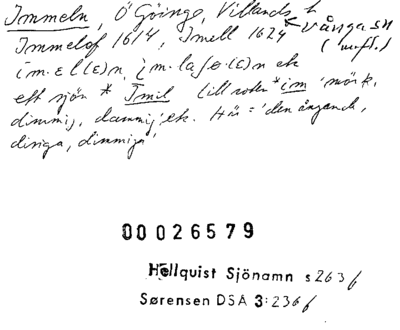 Immeln, Ö Göinge, Villands h
Immelof 1614, Imell 1624 Vånga sn
im·el(e)n, im·la e(c)n ek
ett sjön * Imil till roten *im 'mörk,
dimmig, dammig' ek. Här = 'den ångande,
disiga, dimmiga'
00026579
Hellquist Sjönamn s 263 f
Sørensen DSA 3:236 f